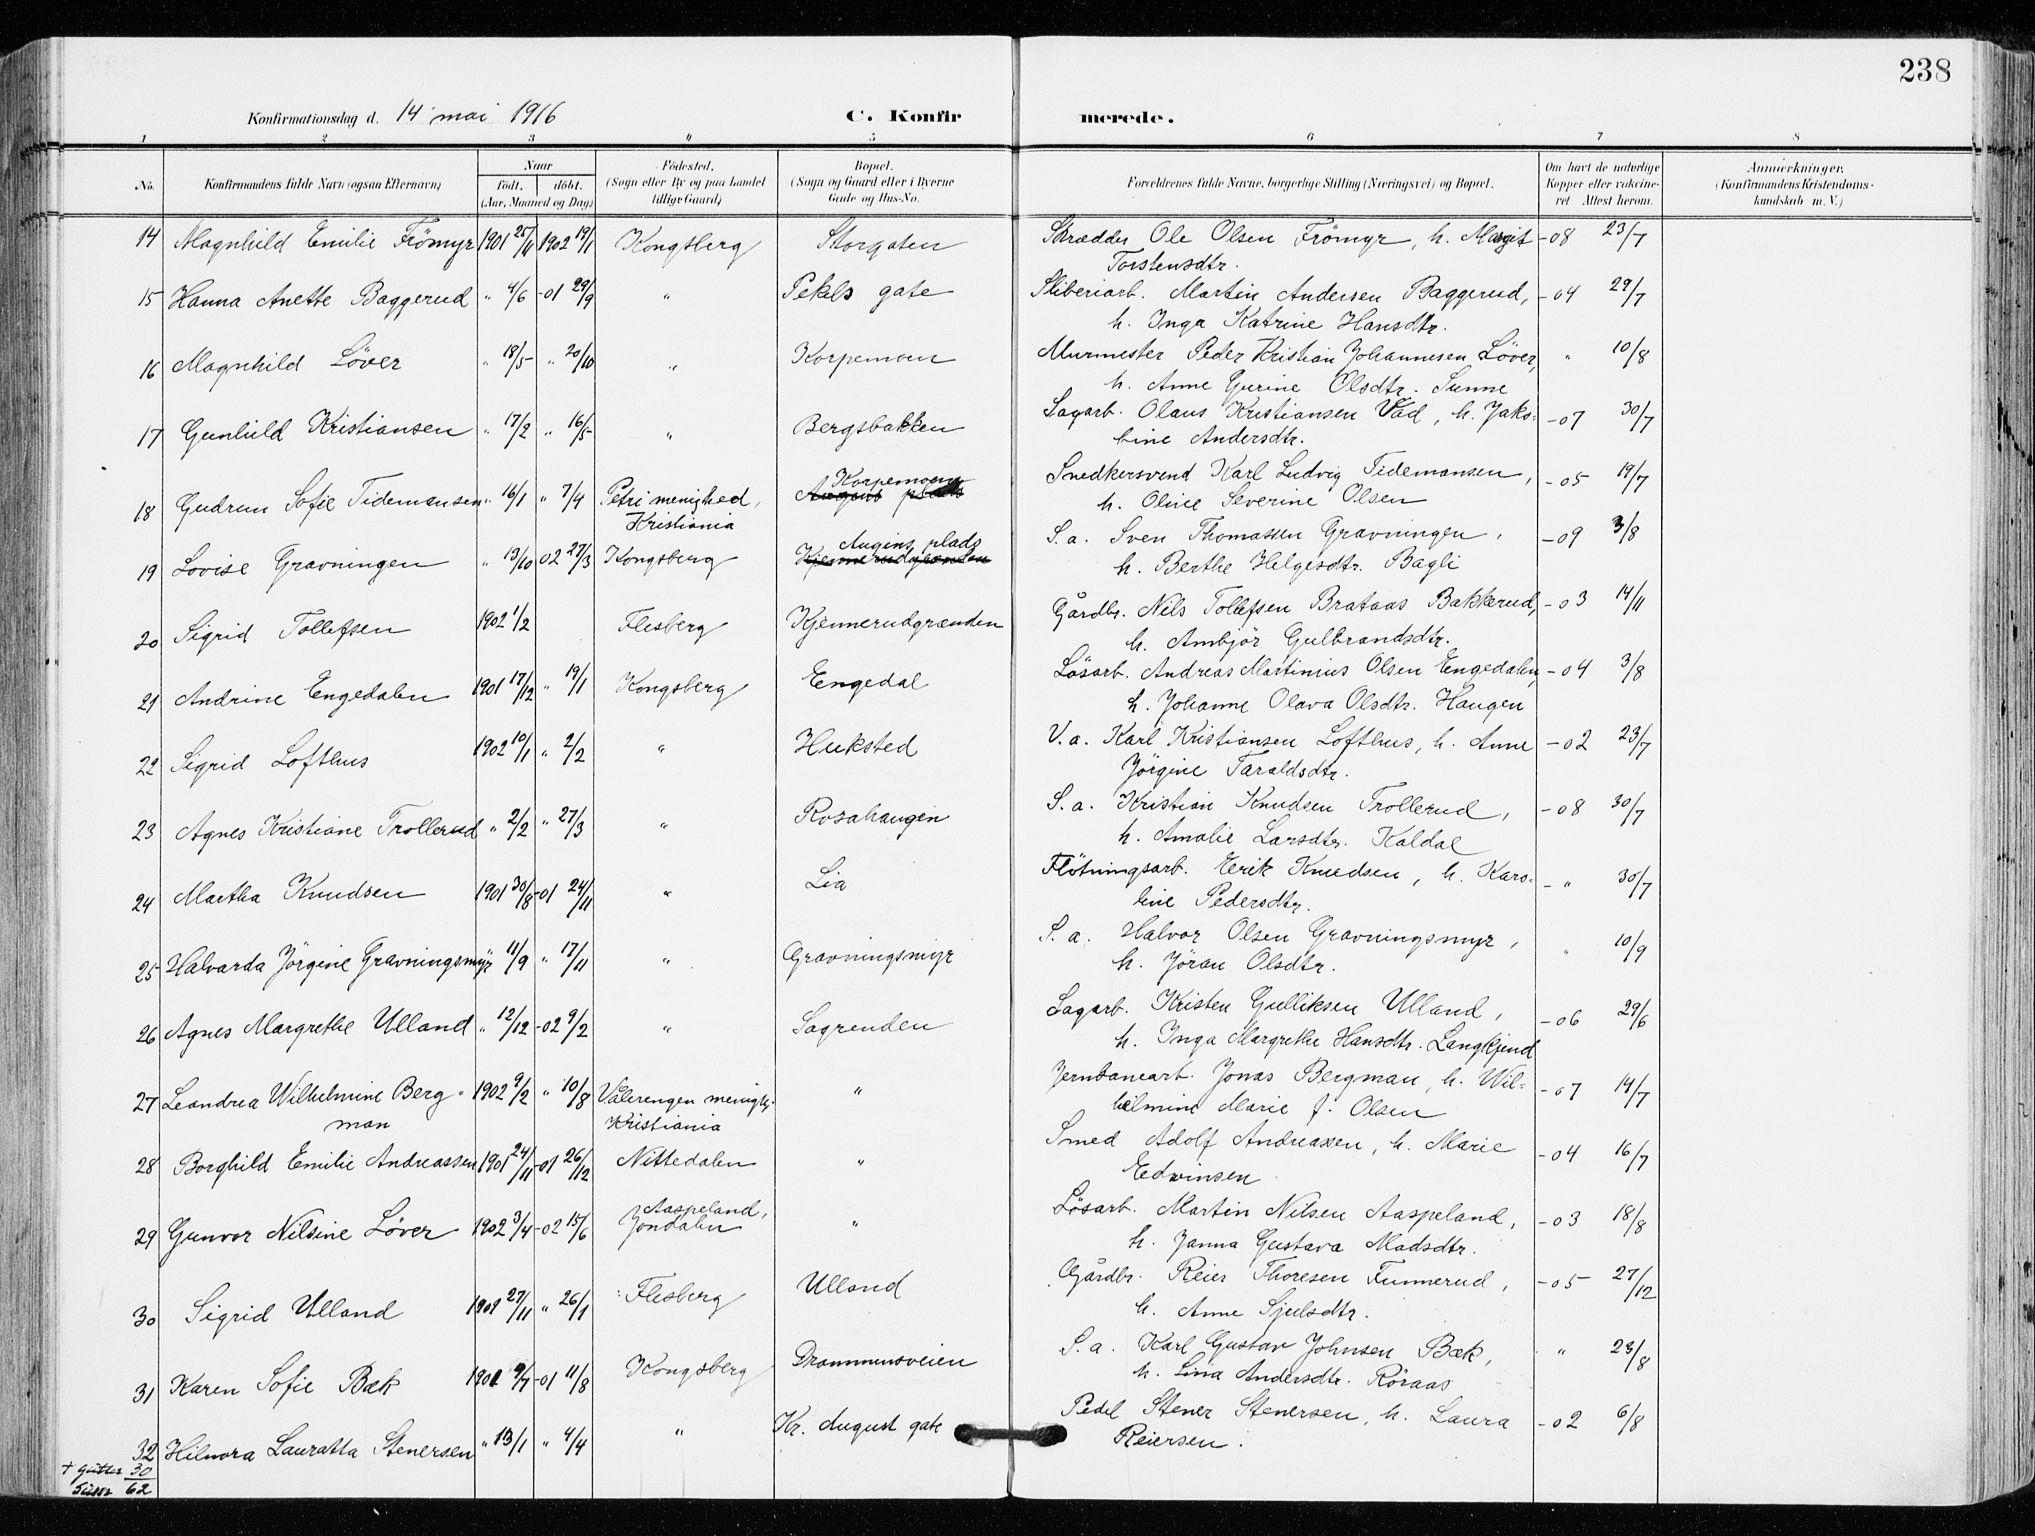 238
Konfirmationsdag d. 14 mai 1916 C. Konfir merede.
1 2 3 4 5 6 7 8
No. Konfirmandens fulde Navn (ogsaa Efternavn) Naar födt. döbt. (Aar, Maaned og Dag) Födested. (Sogn eller By og paa Landet tillige Gaard) Bopæl. (Sogn og Gaard eller i Byerne Gade og Hus-No. Forældrenes fulde Navne, borgerlige Stilling (Næringsvei) og Bopæl. Om havt de naturlige Kopper eller vakcineret Attest herom. Anmærkninger. (Konfirmandens Kristendomskundskab m. V.)
14 Magnhild Emilie Frömyr 1901 25/11 1902 19/1 Kongsberg Storgaten Skrædder Ole Olsen Frömyr, h. Margit -08 23/7
Torstensdtr.
15 Hanna Anette Baggerud " 4/6 -01 29/9 " Pekels gate Sliberiarb. Martin Andersen Baggerud, -04 29/7
h. Inga Katrine Hansdtr.
16 Magnhild Löver " 18/5 " 20/10 " Korpemoen Murmester Peder Kristian Johannesen Löver, " 10/8
h. Anne Gurine Olsdtr. Sunne
17 Gunhild Kristiansen " 17/2 " 16/5 " Bergsbakken Sagarb. Olaus Kristiansen Vad, h. Jako- -07 30/7
bine Andersdtr.
18 Gudrun Sofie Tidemansen " 16/1 " 7/4 Petri menighed, Kristiania Korpemoen Snedkersvend Karl Ludvig Tidemansen, -05 19/7
h. Oline Severine Olsen
19 Lovise Gravningen " 13/10 02 27/3 Kongsberg Augins plads Kjennerudgrænden S.a. Sven Thomassen Gravningen, -09 3/8
h. Berthe Helgesdtr. Bagli
20 Sigrid Tollefsen 1902 1/2 Flesberg Kjennerudgrænden Gårdbr. Nils Tollefsen Brataas Bakkerud, -03 14/11
h. Ambjör Gulbrandsdtr.
21 Andrine Engedalen 1901 17/12 " 19/1 Kongsberg Engedal Lösarb. Andreas Martinius Olsen Engedalen, -04 3/8
h. Johanne Olava Olsdtr. Haugen
22 Sigrid Lofthus 1902 10/1 " 2/2 " Huksted V.a. Karl Kristiansen Lofthus, h. Anne -02 23/7
Jörgine Taraldsdtr.
23 Agnes Kristiane Trollerud " 2/2 " 27/3 " Rosahaugen S.a. Kristian Knudsen Trollerud, -08 30/7
h. Amalie Larsdtr. Kaldal
24 Martha Knudsen 1901 30/8 -01 24/11 " Lia Flötningsarb. Eerik Knudsen, h. Karo- -" 30/7
line Pedersdtr.
25 Halvarda Jörgine Gravningsmyr " 11/9 " 17/11 " Gravningsmyr S.a. Halvor Olsen Gravningsmyr, " 10/9
h. Jöran Olsdtr.
26 Agnes Margrethe Ulland " 12/12 -02 9/2 " Sagrenden Sagarb. Kristen Gulliksen Ulland, -06 29/6
h. Inga Margrethe Hansdtr. Langkjend
27 Leandrea Wilhelmine Berg- 1902 9/2 " 10/8 Vålerengen menigh. " Jernbanearb. Jonas Bergman, h. Wil- -07 14/7
man Kristiania helmine Marie f. Olsen
28 Borghild Emilie Andreassen 1901 24/11 -01 26/12 Nittedalen " Smed Adolf Andreassen, h. Marie -04 16/7
Eedvinsen
29 Gunvor Nilsine Löver 1902 3/4 -02 15/6 Aaspeland, Jondalen " Lösarb. Martin Nilsen Aaspeland, -03 18/8
h. Janna Gustava Madsdtr.
30 Sigrid Ulland 1901 27/11 " 26/1 Flesberg Ulland Gårdbr. Reier Thoresen Funnerud, -05 27/12
h. Anne Sjulsdtr.
31 Karen Sofie Bæk 1901 9/7 -01 11/8 Kongsberg Drammensveien S.a. Karl Gustav Johnsen Bæk, " 23/8
h. Lina Andersdtr. Röraas
32 Hilmora Lauratta Stenersen " 13/1 " 4/4 " Kr. August gate Pedel Stener Stenersen, h. Laura -02 6/8
Reiersen.
+ Gutter 30
Sum 62